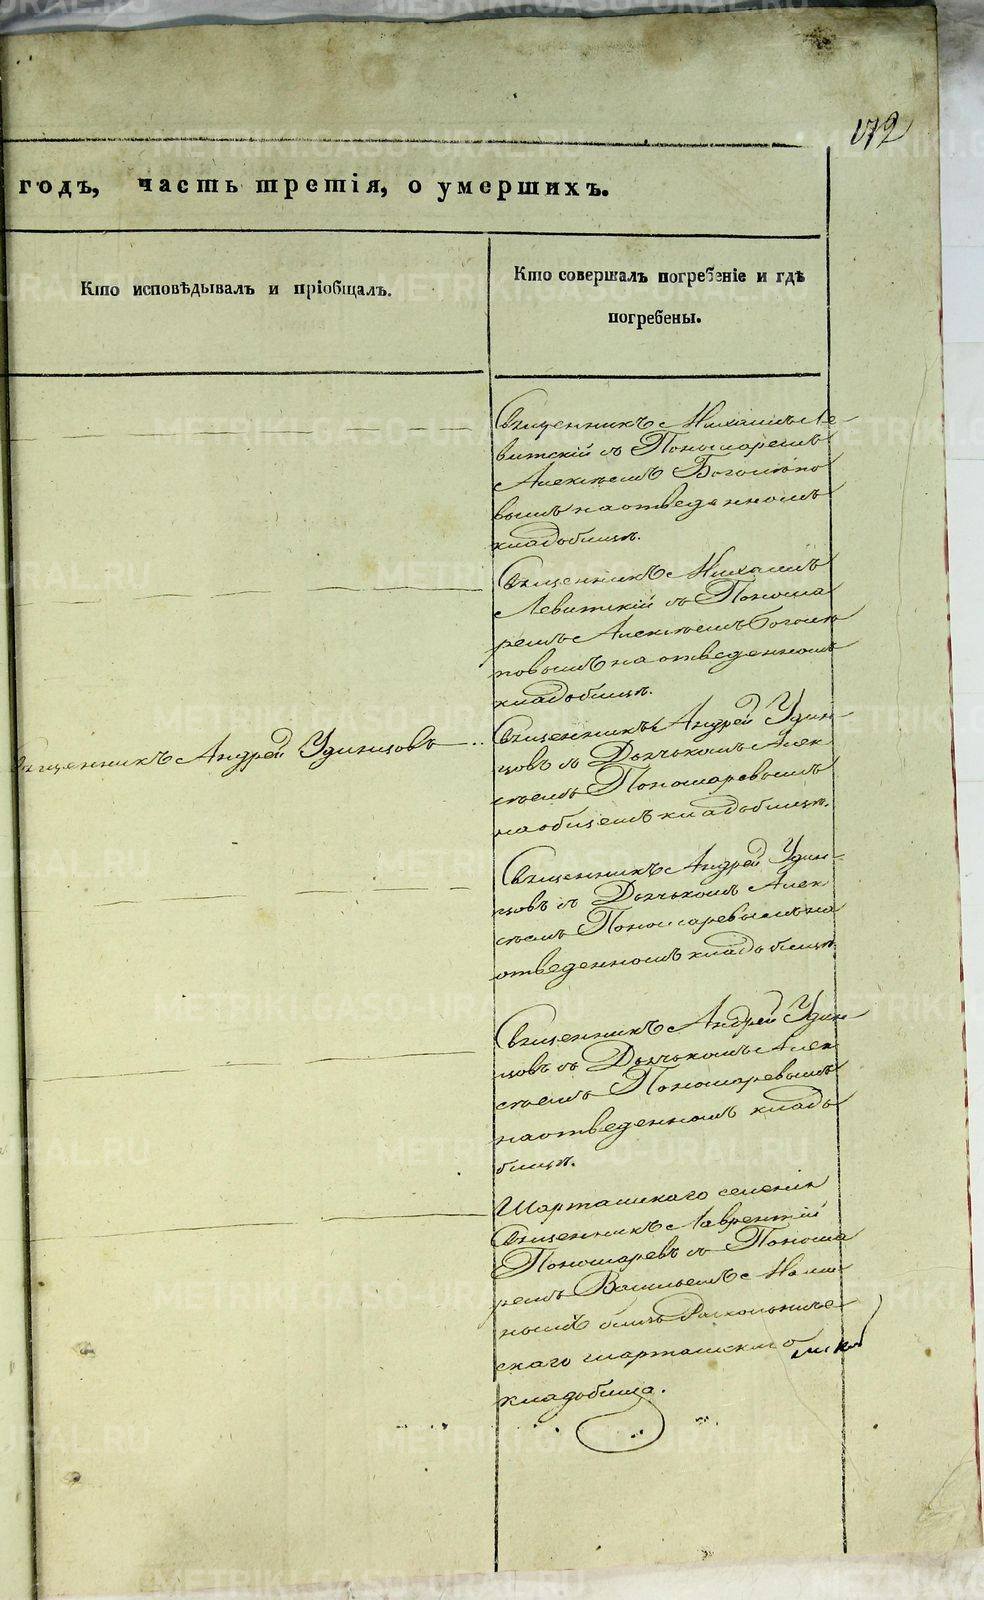 172
годъ, часть третія, о умершихъ.
Кто исповѣдывалъ и пріобщалъ.
Кто совершалъ погребеніе и гдѣ
погребены.
Священникъ Михаилъ Ле-
витскій съ Пономаремъ
Алексѣемъ Боголѣпо
вымъ на отведенномъ
кладбищѣ.
Священникъ Михаилъ
Левитскій съ Понома
ремъ Алексѣемъ Боголѣ
повымъ на отведенномъ
кладбищѣ.
Священникъ Андрей Удинцовъ
Священникъ Андрей Удин
цовъ съ Дьячкомъ Алек
сѣемъ Пономаревымъ
на общемъ кладбищѣ.
Священникъ Андрей Удин-
цовъ съ Дьячкомъ Алек
сѣемъ Пономаревымъ на
отведенномъ кладбищѣ.
Священникъ Андрей Удин
цовъ съ Дьячкомъ Алек
сѣемъ Пономаревымъ
на отведенномъ кладб
бищѣ.
Шарташскаго селенія
Священникъ Лаврентій
Пономаревъ съ Понома
ремъ Васильемъ
близь Раскольниче
скаго Шарташскаго
кладбища.
METRIKI.GASO-URAL.RU